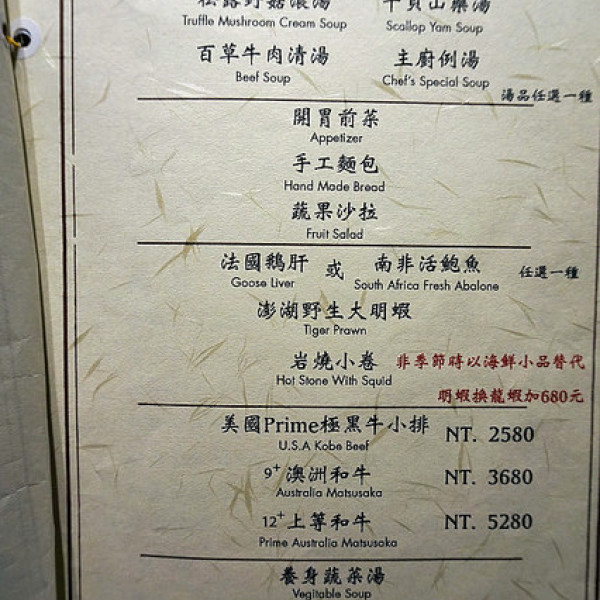 松露野菇濃湯 干貝山藥湯
Truffle Mushroom Cream Soup Scallop Yam Soup
百草牛肉清湯 主廚例湯
Beef Soup Chef's Special Soup
湯品任選一種
開胃前菜
Appetizer
手工麵包
Hand Made Bread
蔬果沙拉
Fruit Salad
法國鵝肝 或 南非活鮑魚 任選一種
Goose Liver South Africa Fresh Abalone
澎湖野生大明蝦
Tiger Prawn
岩燒小卷 非季節時以海鮮小品替代
Hot Stone With Squid
明蝦換龍蝦加680元
美國Prime極黑牛小排 NT. 2580
U.S.A Kobe Beef
9+ 澳洲和牛 NT. 3680
Australia Matsusaka
12+ 上等和牛 NT. 5280
Prime Australia Matsusaka
養身蔬菜湯
Vegitable Soup